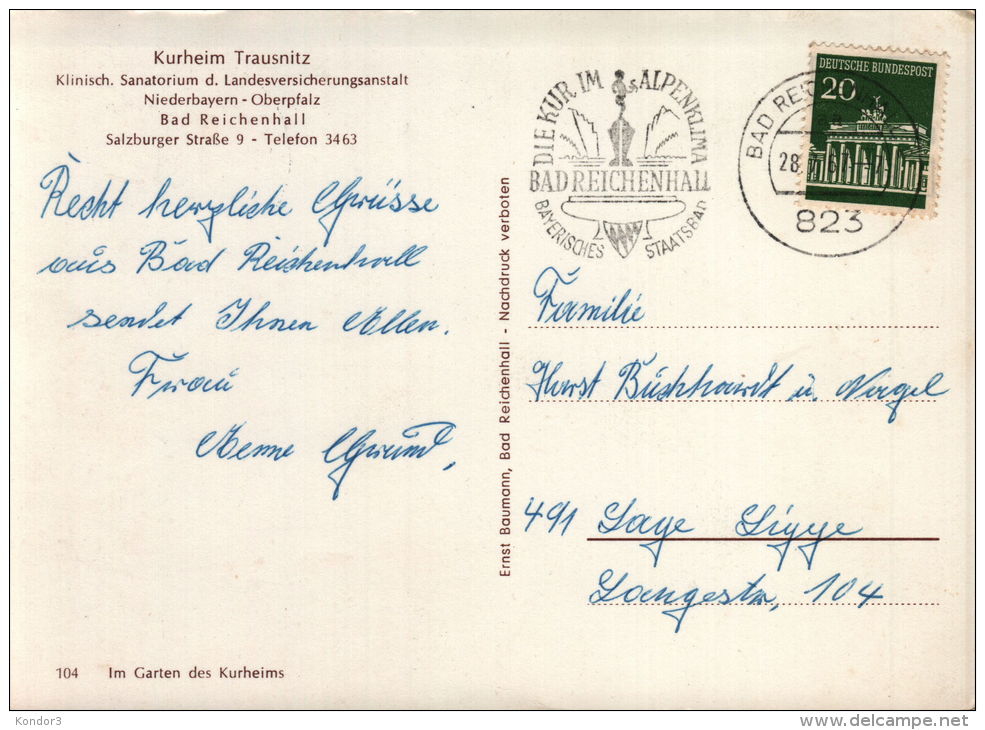 Kurheim Trausnitz
Klinisch. Sanatorium d. Landesversicherungsanstalt
Niederbayern - Oberpfalz
Bad Reichenhall
Salzburger Straße 9 - Telefon 3463
Recht herzliche Grüsse
aus Bad Reichenhall
sendet Ihnen Allen.
Frau
Grund,
104 Im Garten des Kurheims
Ernst Baumann, Bad Reichenhall - Nachdruck verboten
DIE KUR IM ALPENKLIMA
BAD REICHENHALL
BAYERISCHES STAATSBAD
DEUTSCHE BUNDESPOST
20
BAD
28
823
Familie
Horst Buschhardt u. Nagel
491 Lage Lippe
Langestr, 104
Kondor3
delcampe.net